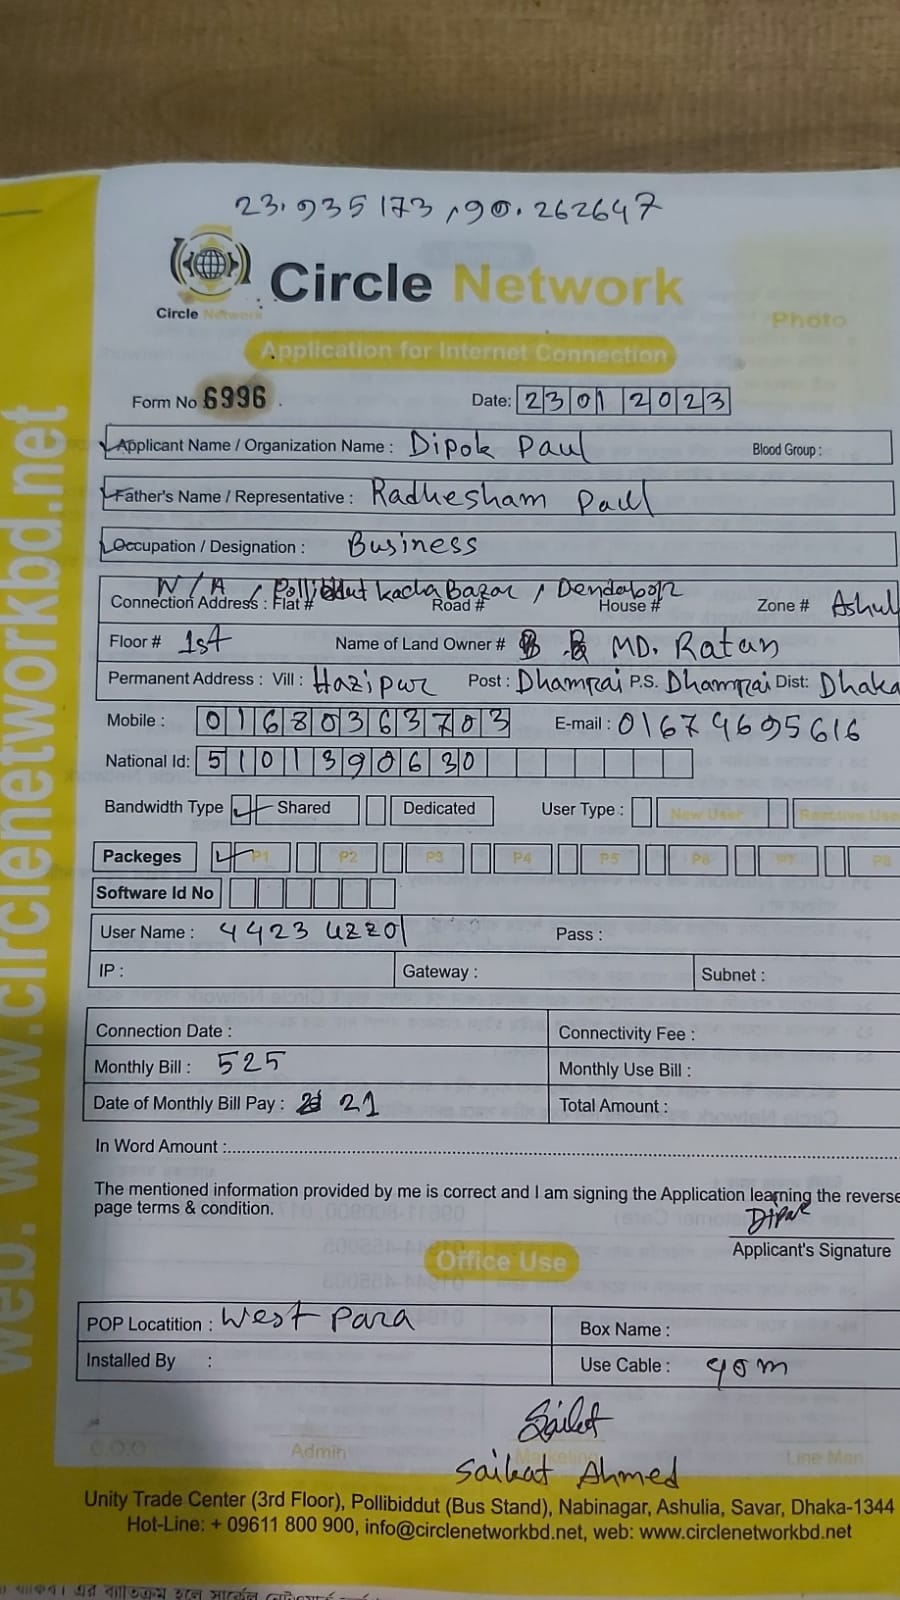 23.935173,90.262647
Circle Network
Circle Network
Photo
Application for Internet Connection
Form No 6996
Date: 23012023
Applicant Name / Organization Name : Dipok Paul Blood Group :
Father's Name / Representative : Radhesham Paul
Occupation / Designation : Business
N/A , Pollibidut kacha Bazar , Dendabor
Connection Address : Flat # Road # House # Zone # Ashul
Floor # 1st Name of Land Owner # MD. Ratan
Permanent Address : Vill : Hazipur Post : Dhamrai P.S. Dhamrai Dist: Dhaka
Mobile : 01680363703 E-mail : 01674695616
National Id: 5101390630
Bandwidth Type Shared Dedicated User Type : New User Reactive Use
Packeges P1 P2 P3 P4 P5 P6 P7 P8
Software Id No
User Name : 4423 uzzol Pass :
IP : Gateway : Subnet :
Connection Date : Connectivity Fee :
Monthly Bill : 525 Monthly Use Bill :
Date of Monthly Bill Pay : 21 Total Amount :
In Word Amount :
The mentioned information provided by me is correct and I am signing the Application learning the reverse
page terms & condition.
Applicant's Signature
Office Use
POP Locatition : West para Box Name :
Installed By : Use Cable : 90m
Saikat
Admin Marketing Line Man
Saikat Ahmed
Unity Trade Center (3rd Floor), Pollibiddut (Bus Stand), Nabinagar, Ashulia, Savar, Dhaka-1344
Hot-Line: + 09611 800 900, info@circlenetworkbd.net, web: www.circlenetworkbd.net
web: www.circlenetworkbd.net